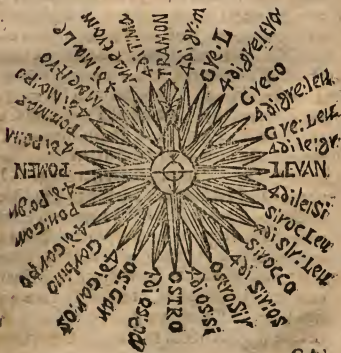 TRAMON
4 di gr:m
GYe: L
4 di gre: e tra
GYECO
4 di gre: leu
GYe: Leu
4 di le: gr
LEVAN.
4 di le: si
siroc Leu
4 di sir: Leu
sirocco
4 di sir os
4 di os: si
OSTRO
os: gar
4 di gar: os
Garbino
4 di gar po
pon: gar
4 di po: ga
PONEN
4 di po: M
Pon: Mae
4 di Ma: po
Maestro
4 di Ma Le
Mae tra m
4 di t:Ma